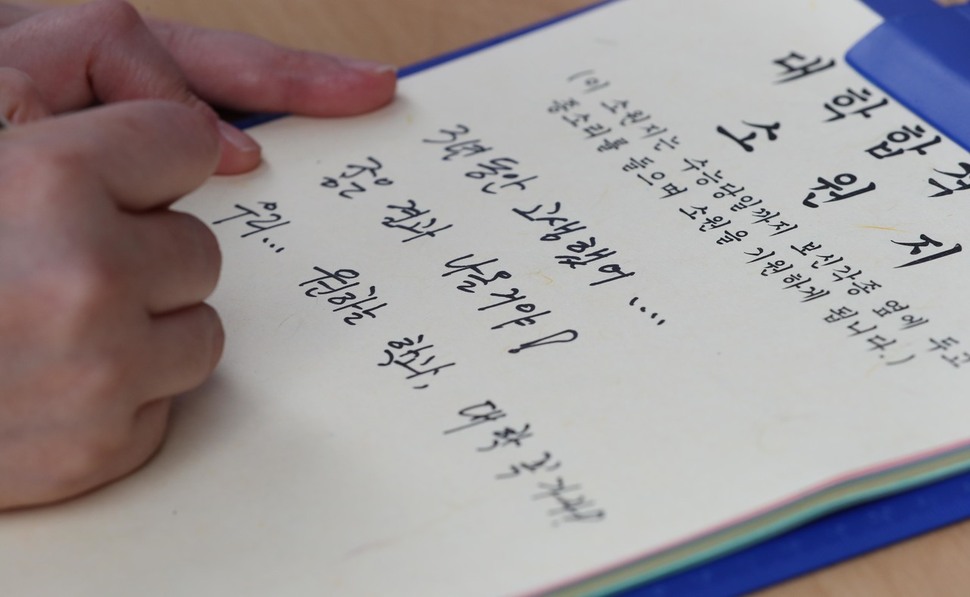 대학합격
소원지
(이 소원지는 수능당일까지 보신각종 옆에 두고
종소리를 들으며 소원을 기원하게 됩니다.)
3년 동안 고생했어 ...
좋은 결과 나올거야!
우리... 원하는 학과, 대학 꼭 가자!